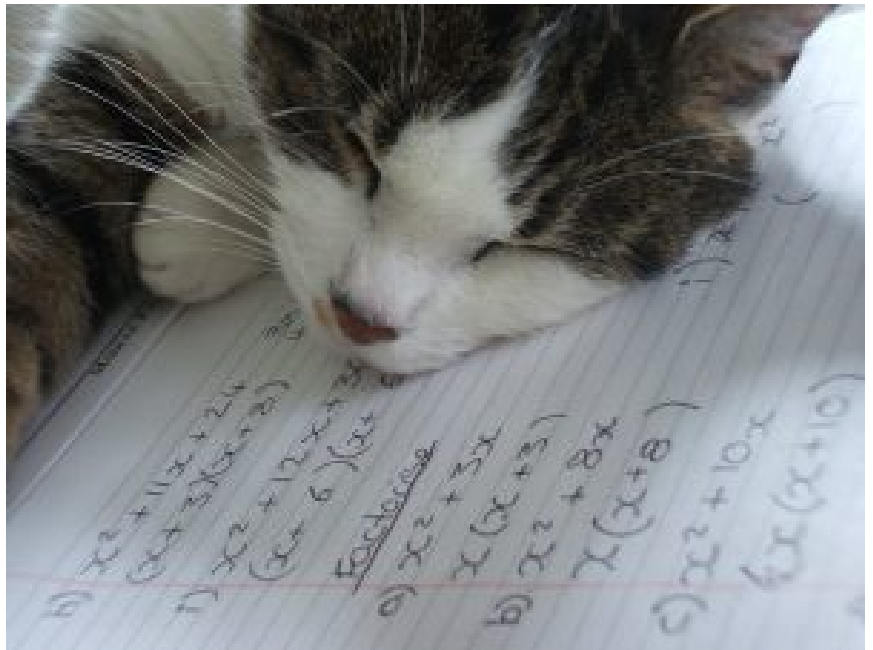 h) x² + 11x + 24
(x + 3)(x + 8)
i) x² + 12x + 3
(x + 6)(x +
Factorise
a) x² + 3x
x(x + 3)
b) x² + 8x
x(x + 8)
c) x² + 10x
x(x + 10)
j)